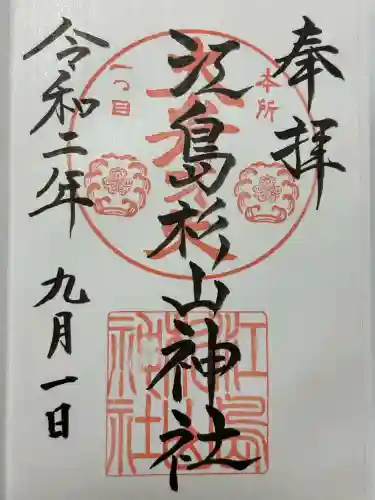 奉拝
江島杉山神社
令和二年 九月一日
本所
一つ目
江島
杉山
神社